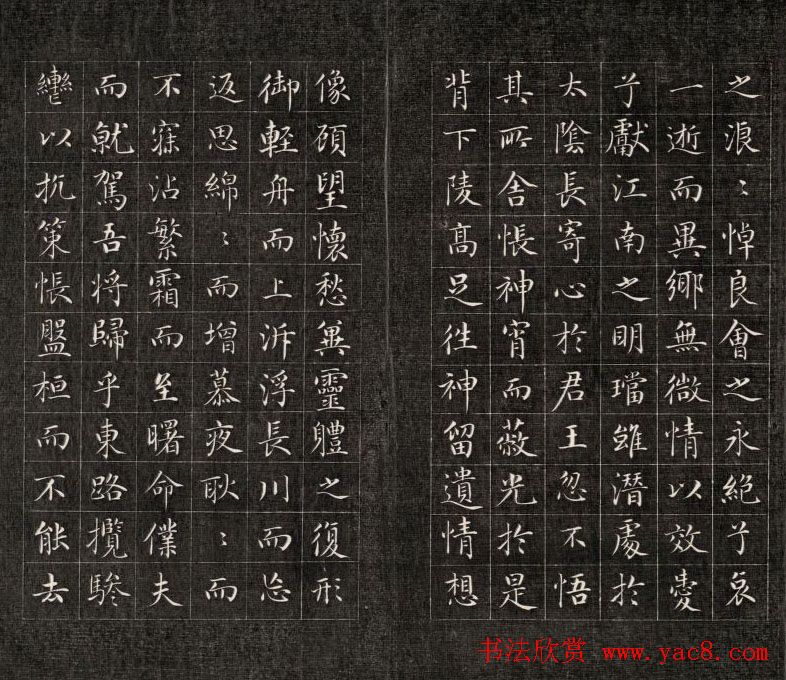 之浪〻悼良會之永絕兮哀
一逝而異鄉無微情以效愛
兮獻江南之明璫雖潛處於
太陰長寄心於君王忽不悟
其所舍悵神宵而蔽光於是
背下陵高足往神留遺情想
像顧望懷愁冀靈體之復形
御輕舟而上泝浮長川而忘
返思綿〻而增慕夜耿〻而
不寐沾繁霜而至曙命僕夫
而就駕吾將歸乎東路攬驂
轡以抗策悵盤桓而不能去
书法欣赏 www.yac8.com